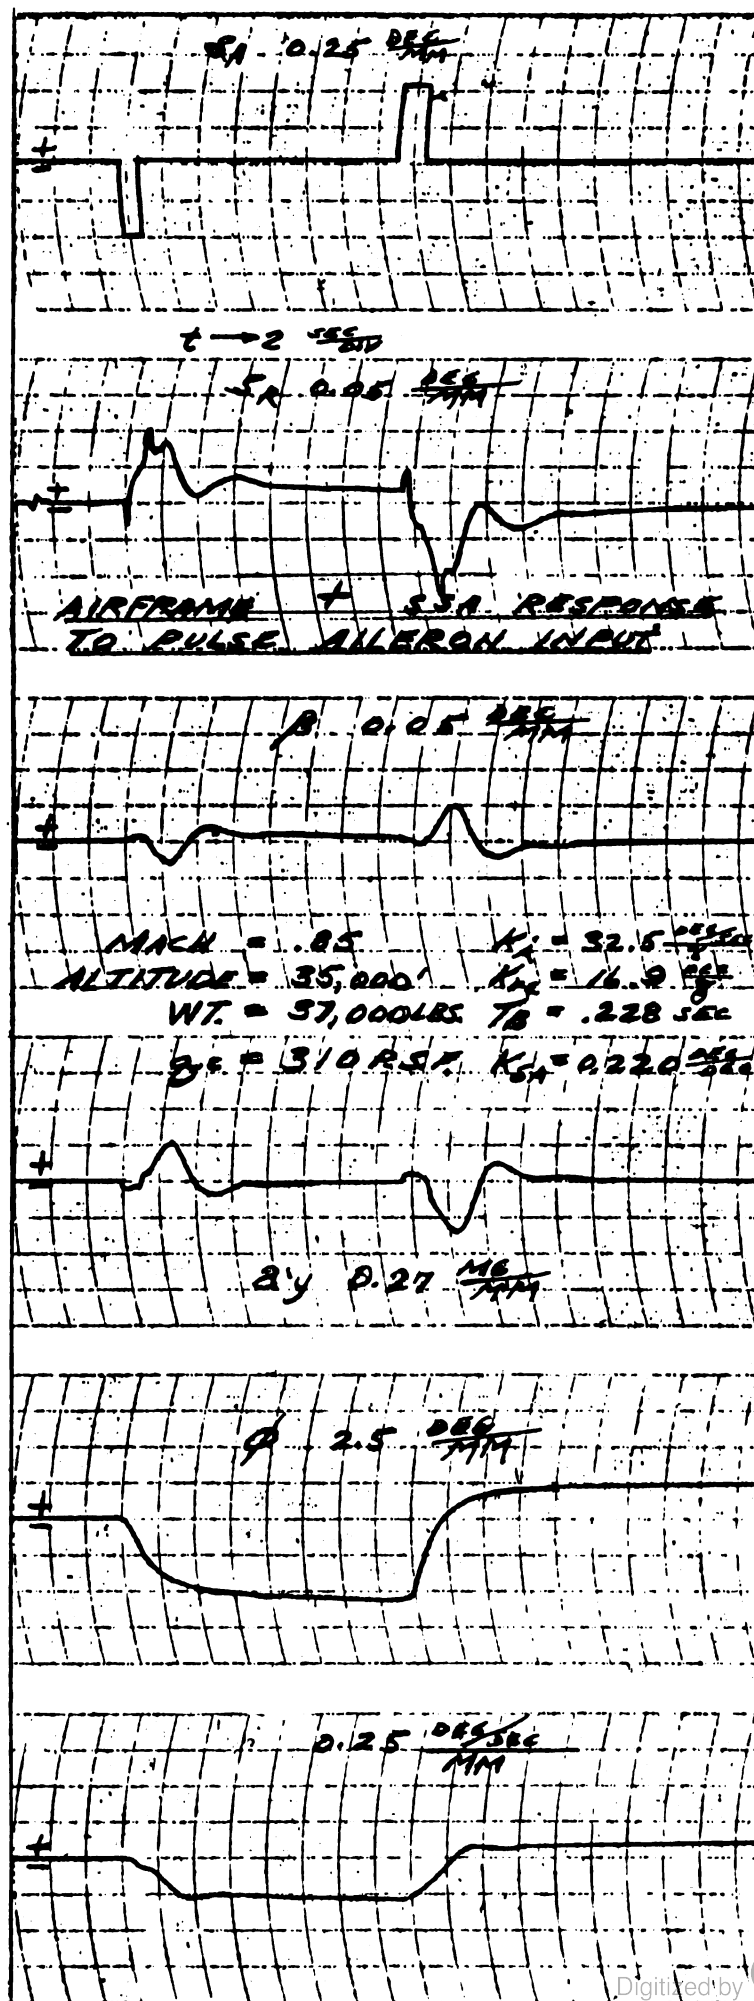 δA 0.25 DEG/MM
+
-
t → 2 SEC/DIV
δR 0.05 DEG/MM
+
-
AIRFRAME + SSA RESPONSE
TO PULSE AILERON INPUT
β 0.05 DEG/MM
+
-
MACH = .85
ALTITUDE = 35,000'
WT. = 37,000 LBS.
qc = 310 PSF.
= 32.5
= 16.9
TB = .228 SEC
KδA = 0.220 DEG/DEG
+
-
a'y 0.27 MG/MM
ϕ 2.5 DEG/MM
+
-
0.25 DEG/SEC/MM
+
-
Digitized by